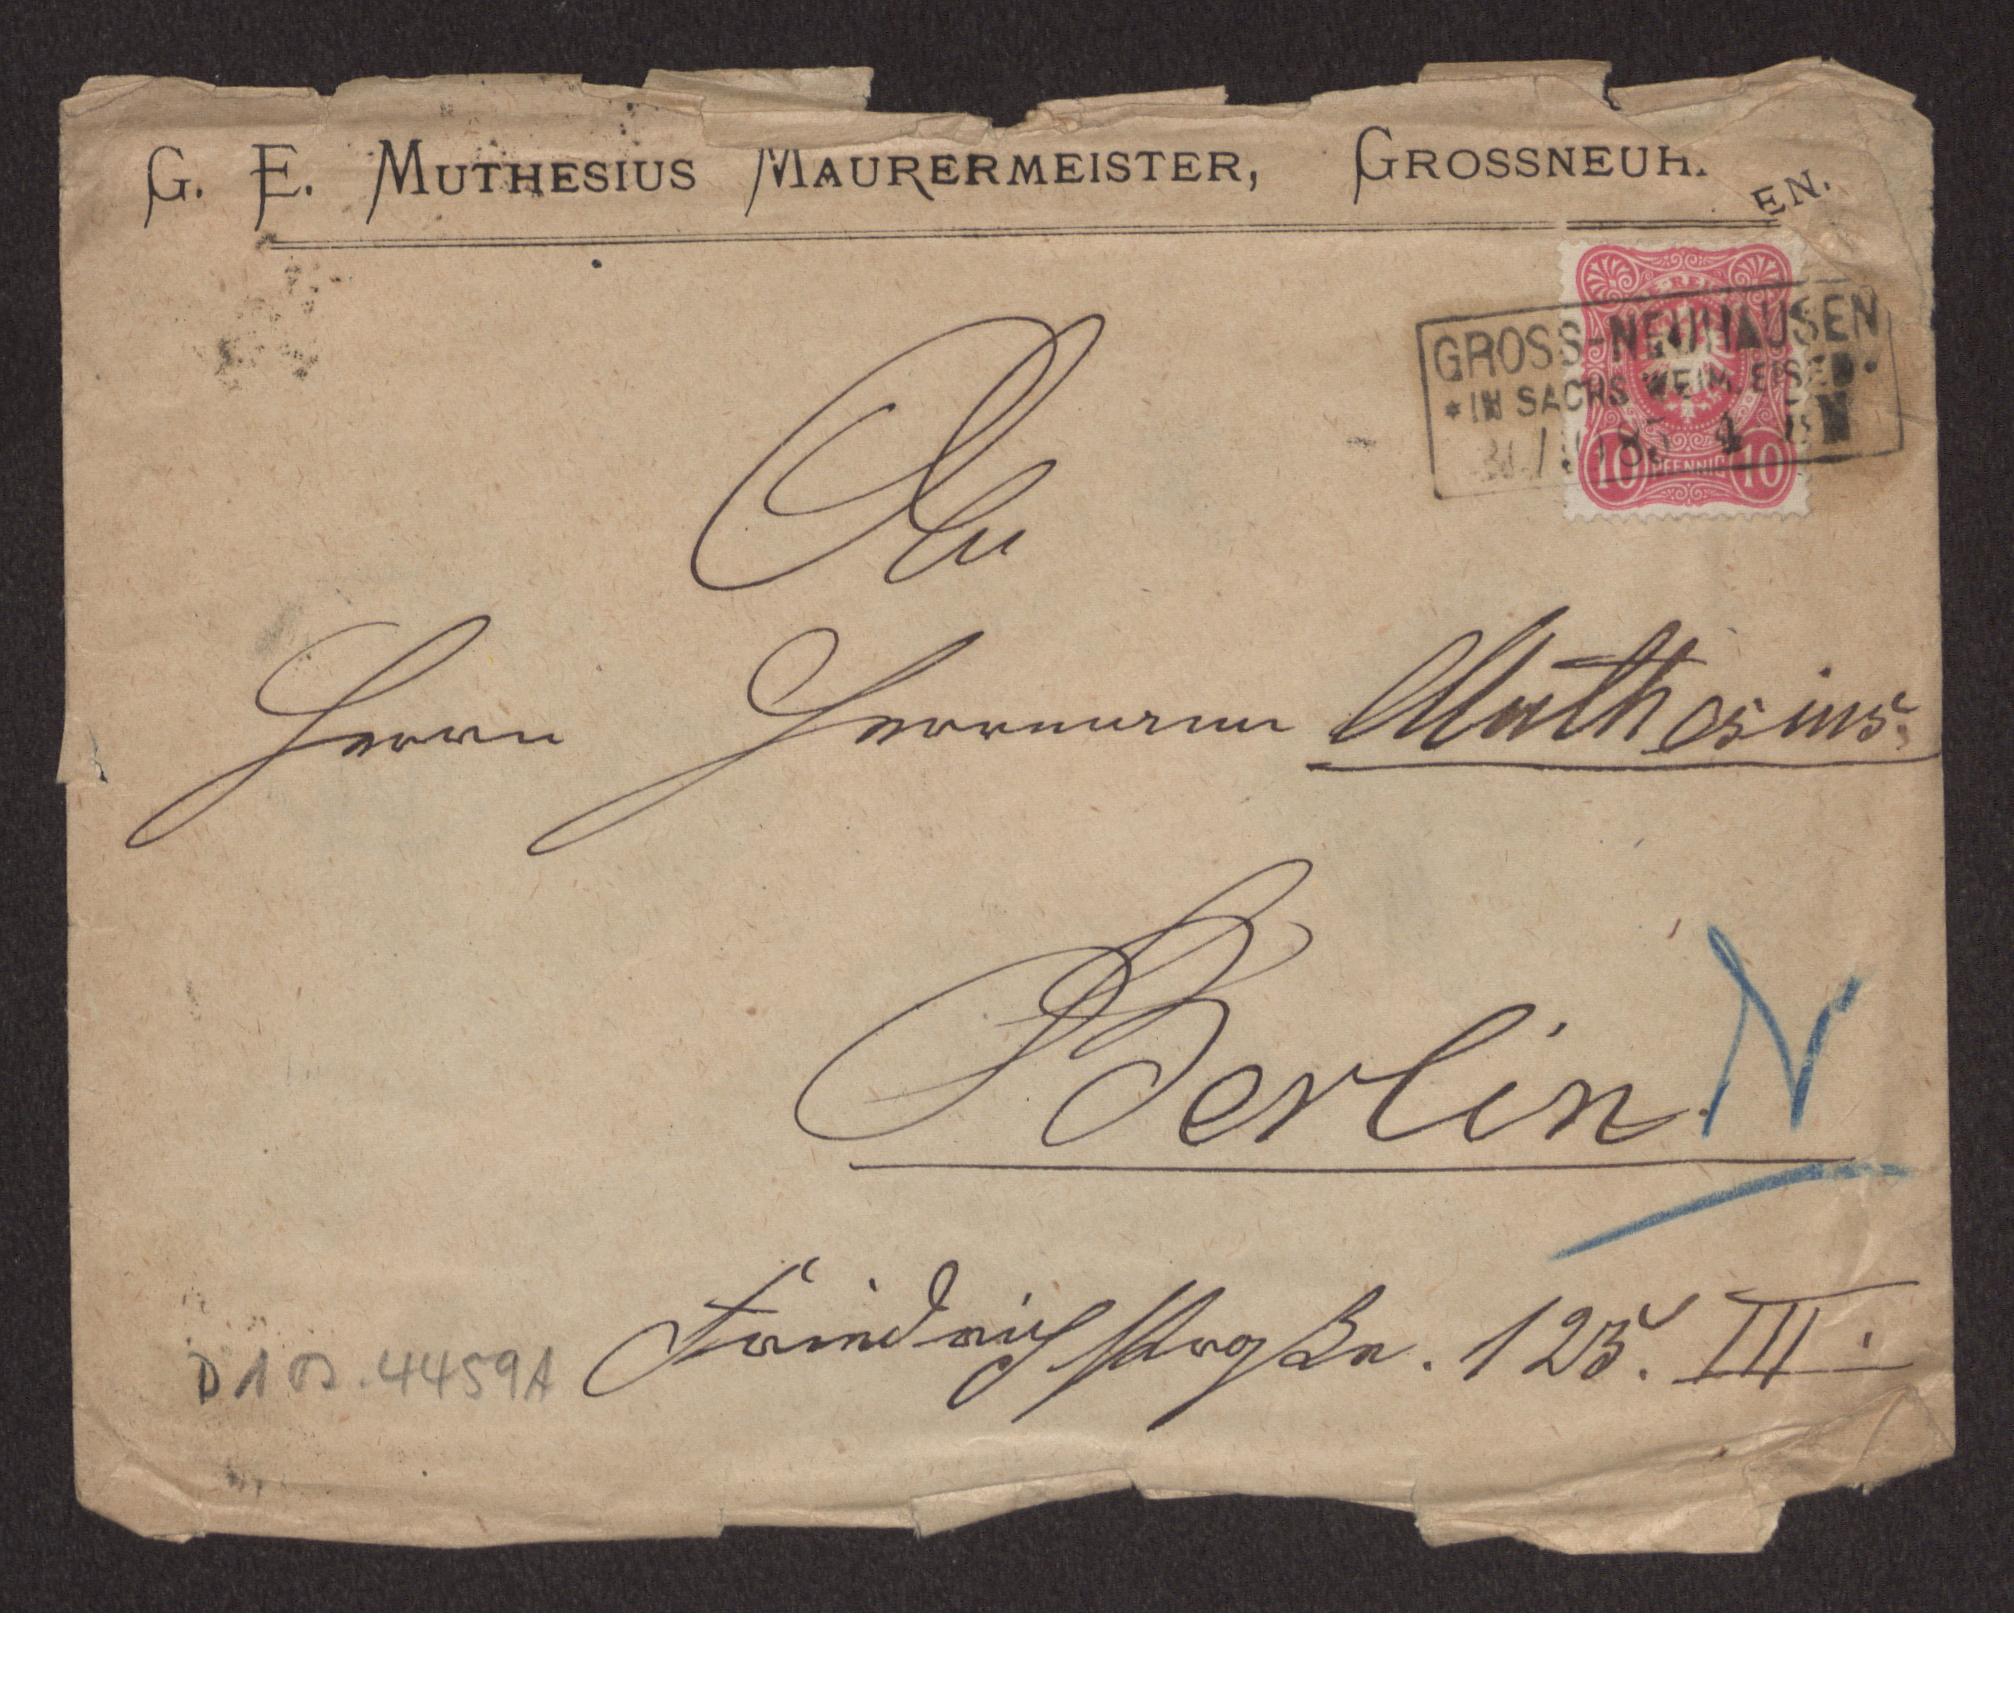 G. E. MUTHESIUS MAURERMEISTER, GROSSNEUH. EN.
GROSS-NEUHAUSEN
*IN SACHS WEIM. EISEN.
85 4
10 PFENNIG 10
An
Herrn Herrmann Muthesius.
Berlin. N
Friedrichstraße. 125. III.
4459A